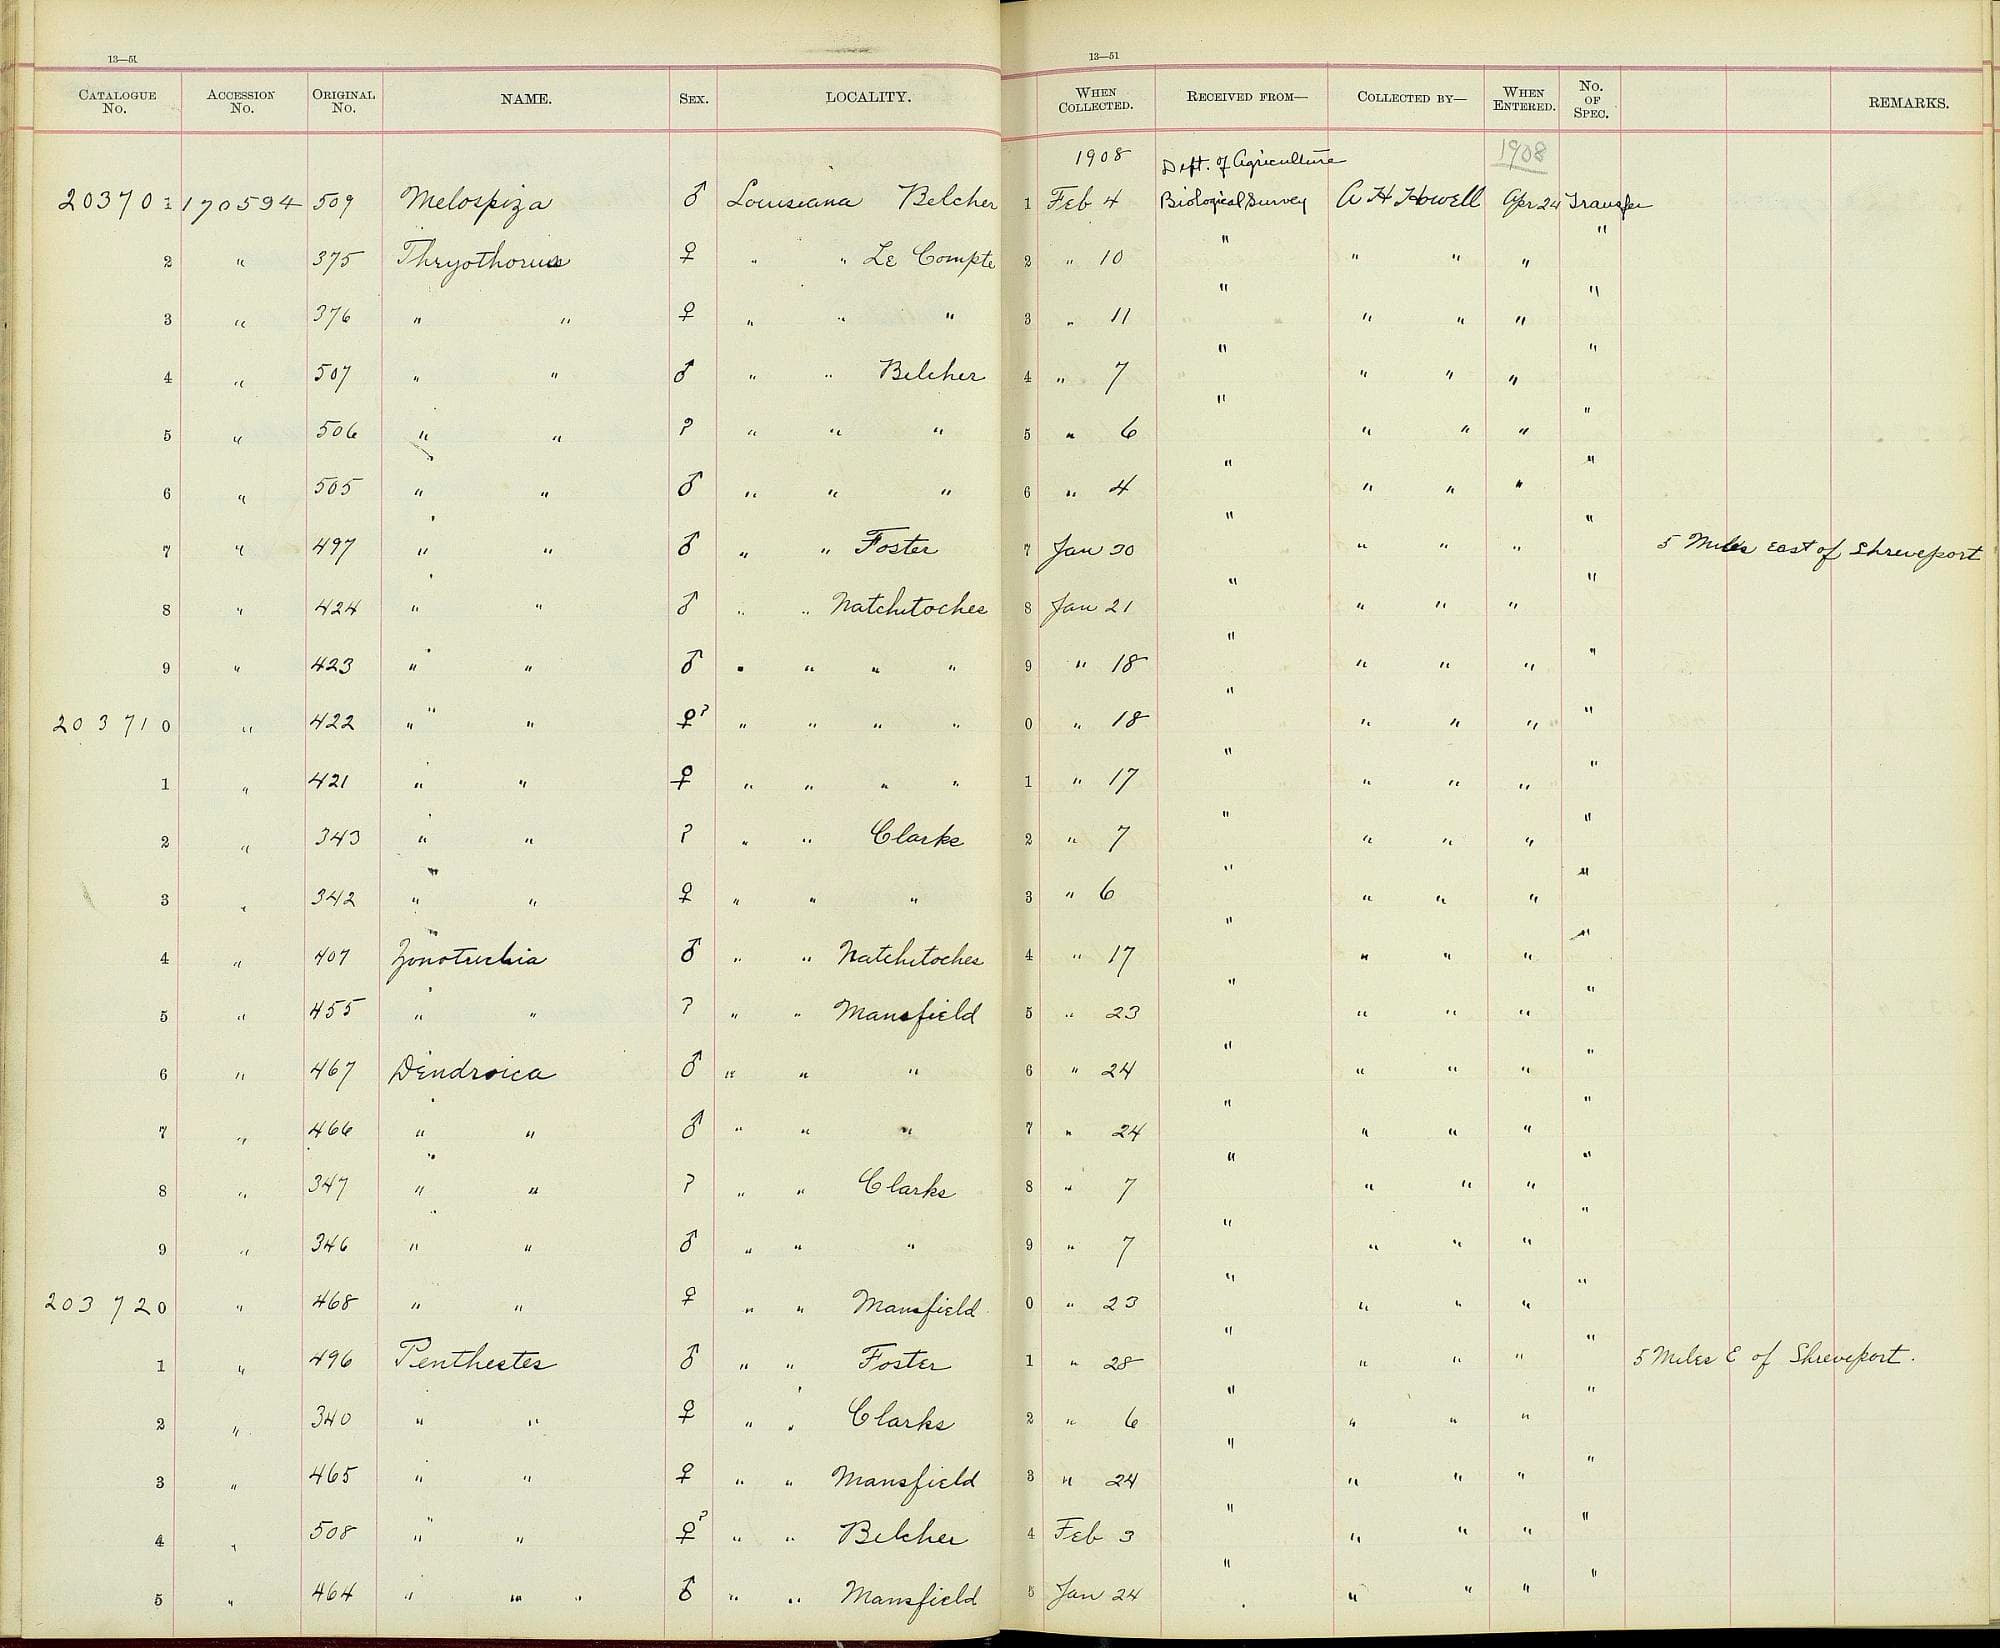 13—51 13—51
CATALOGUE No. ACCESSION No. ORIGINAL No. NAME. SEX. LOCALITY. WHEN COLLECTED. RECEIVED FROM— COLLECTED BY— WHEN ENTERED. No. OF SPEC. REMARKS.
1908 Dept. of Agriculture 1908
203701 170594 509 Melospiza ♂ Louisiana Belcher 1 Feb 4 Biological Survey A H Howell Apr 24 Transfer
2 " 375 Thryothorus ♀ " " Le Compte 2 " 10 " " " " "
3 " 376 " " ♀ " " " 3 " 11 " " " " "
4 " 507 " " ♂ " " Belcher 4 " 7 " " " " "
5 " 506 " " ? " " " 5 " 6 " " " " "
6 " 505 " " ♂ " " " 6 " 4 " " " " "
7 " 497 " " ♂ " " Foster 7 Jan 30 " " " " " 5 Miles East of Shreveport
8 " 424 " " ♂ " " Natchitoches 8 Jan 21 " " " " "
9 " 423 " " ♂ " " " " 9 " 18 " " " " "
203710 " 422 " " ♀? " " " " 0 " 18 " " " " "
1 " 421 " " ♀ " " " " 1 " 17 " " " " "
2 " 343 " " ? " " Clarks 2 " 7 " " " " "
3 " 342 " " ♀ " " " 3 " 6 " " " " "
4 " 407 Zonotrichia ♂ " " Natchitoches 4 " 17 " " " " "
5 " 455 " " ? " " Mansfield 5 " 23 " " " " "
6 " 467 Dendroica ♂ " " " 6 " 24 " " " " "
7 " 466 " " ♂ " " " 7 " 24 " " " " "
8 " 347 " " ? " " Clarks 8 " 7 " " " " "
9 " 346 " " ♂ " " " 9 " 7 " " " " "
203720 " 468 " " ♀ " " Mansfield 0 " 23 " " " " "
1 " 496 Penthestes ♂ " " Foster 1 " 28 " " " " " 5 Miles E of Shreveport.
2 " 340 " " ♀ " " Clarks 2 " 6 " " " " "
3 " 465 " " ♀ " " Mansfield 3 " 24 " " " " "
4 " 508 " " ♀? " " Belcher 4 Feb 3 " " " " "
5 " 464 " " " ♂ " " Mansfield 5 Jan 24 " " " " "